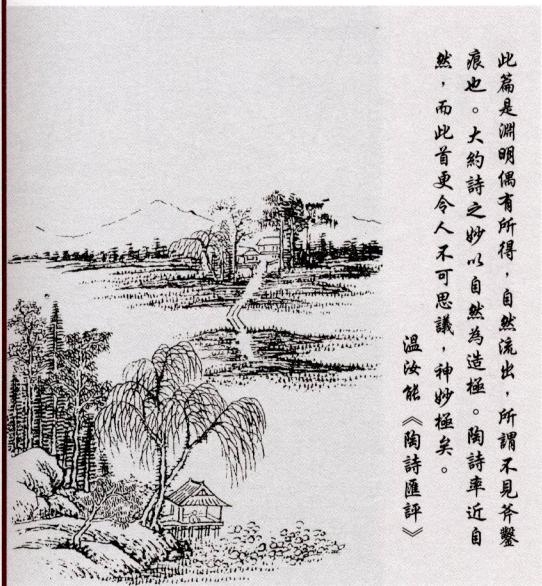 此篇是淵明偶有所得，自然流出，所謂不見斧鑿
痕也。大約詩之妙以自然為造極。陶詩率近自
然，而此首更令人不可思議，神妙極矣。
溫汝能《陶詩匯評》